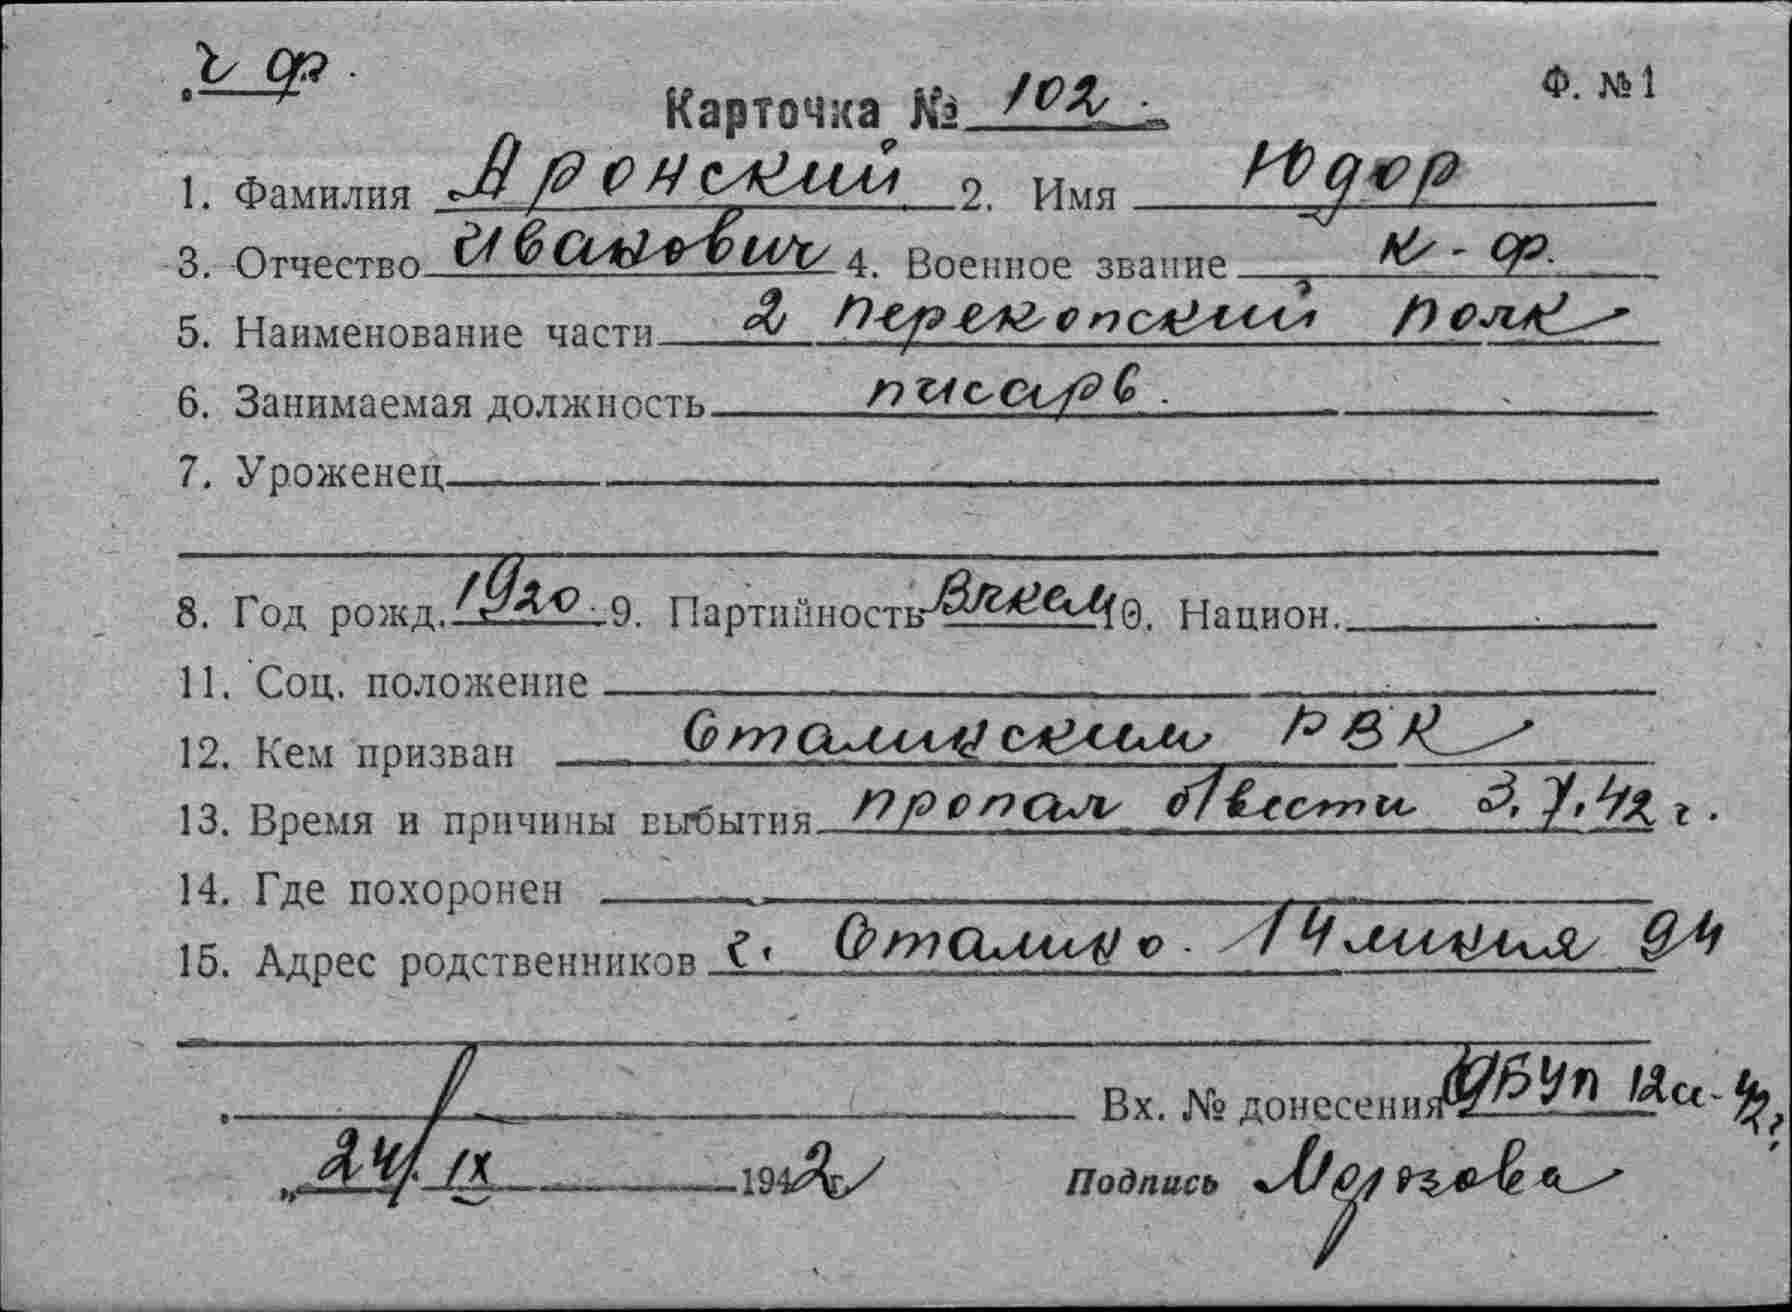 ч ф.
Ф. №1
Карточка № 102.
1. Фамилия Аронский 2. Имя Юдор
3. Отчество Иванович 4. Военное звание к-ф.
5. Наименование части 2 Перекопский полк
6. Занимаемая должность писарь.
7. Уроженец
8. Год рожд. 1920 9. Партийность ВЛКСМ 10. Национ.
11. Соц. положение
12. Кем призван Сталинским РВК
13. Время и причины выбытия пропал б/вести 3.7.42 г.
14. Где похоронен
15. Адрес родственников г. Сталино. 14 линия 94
Вх. № донесения 12с-42
„24/IX 1942г. Подпись Морозова